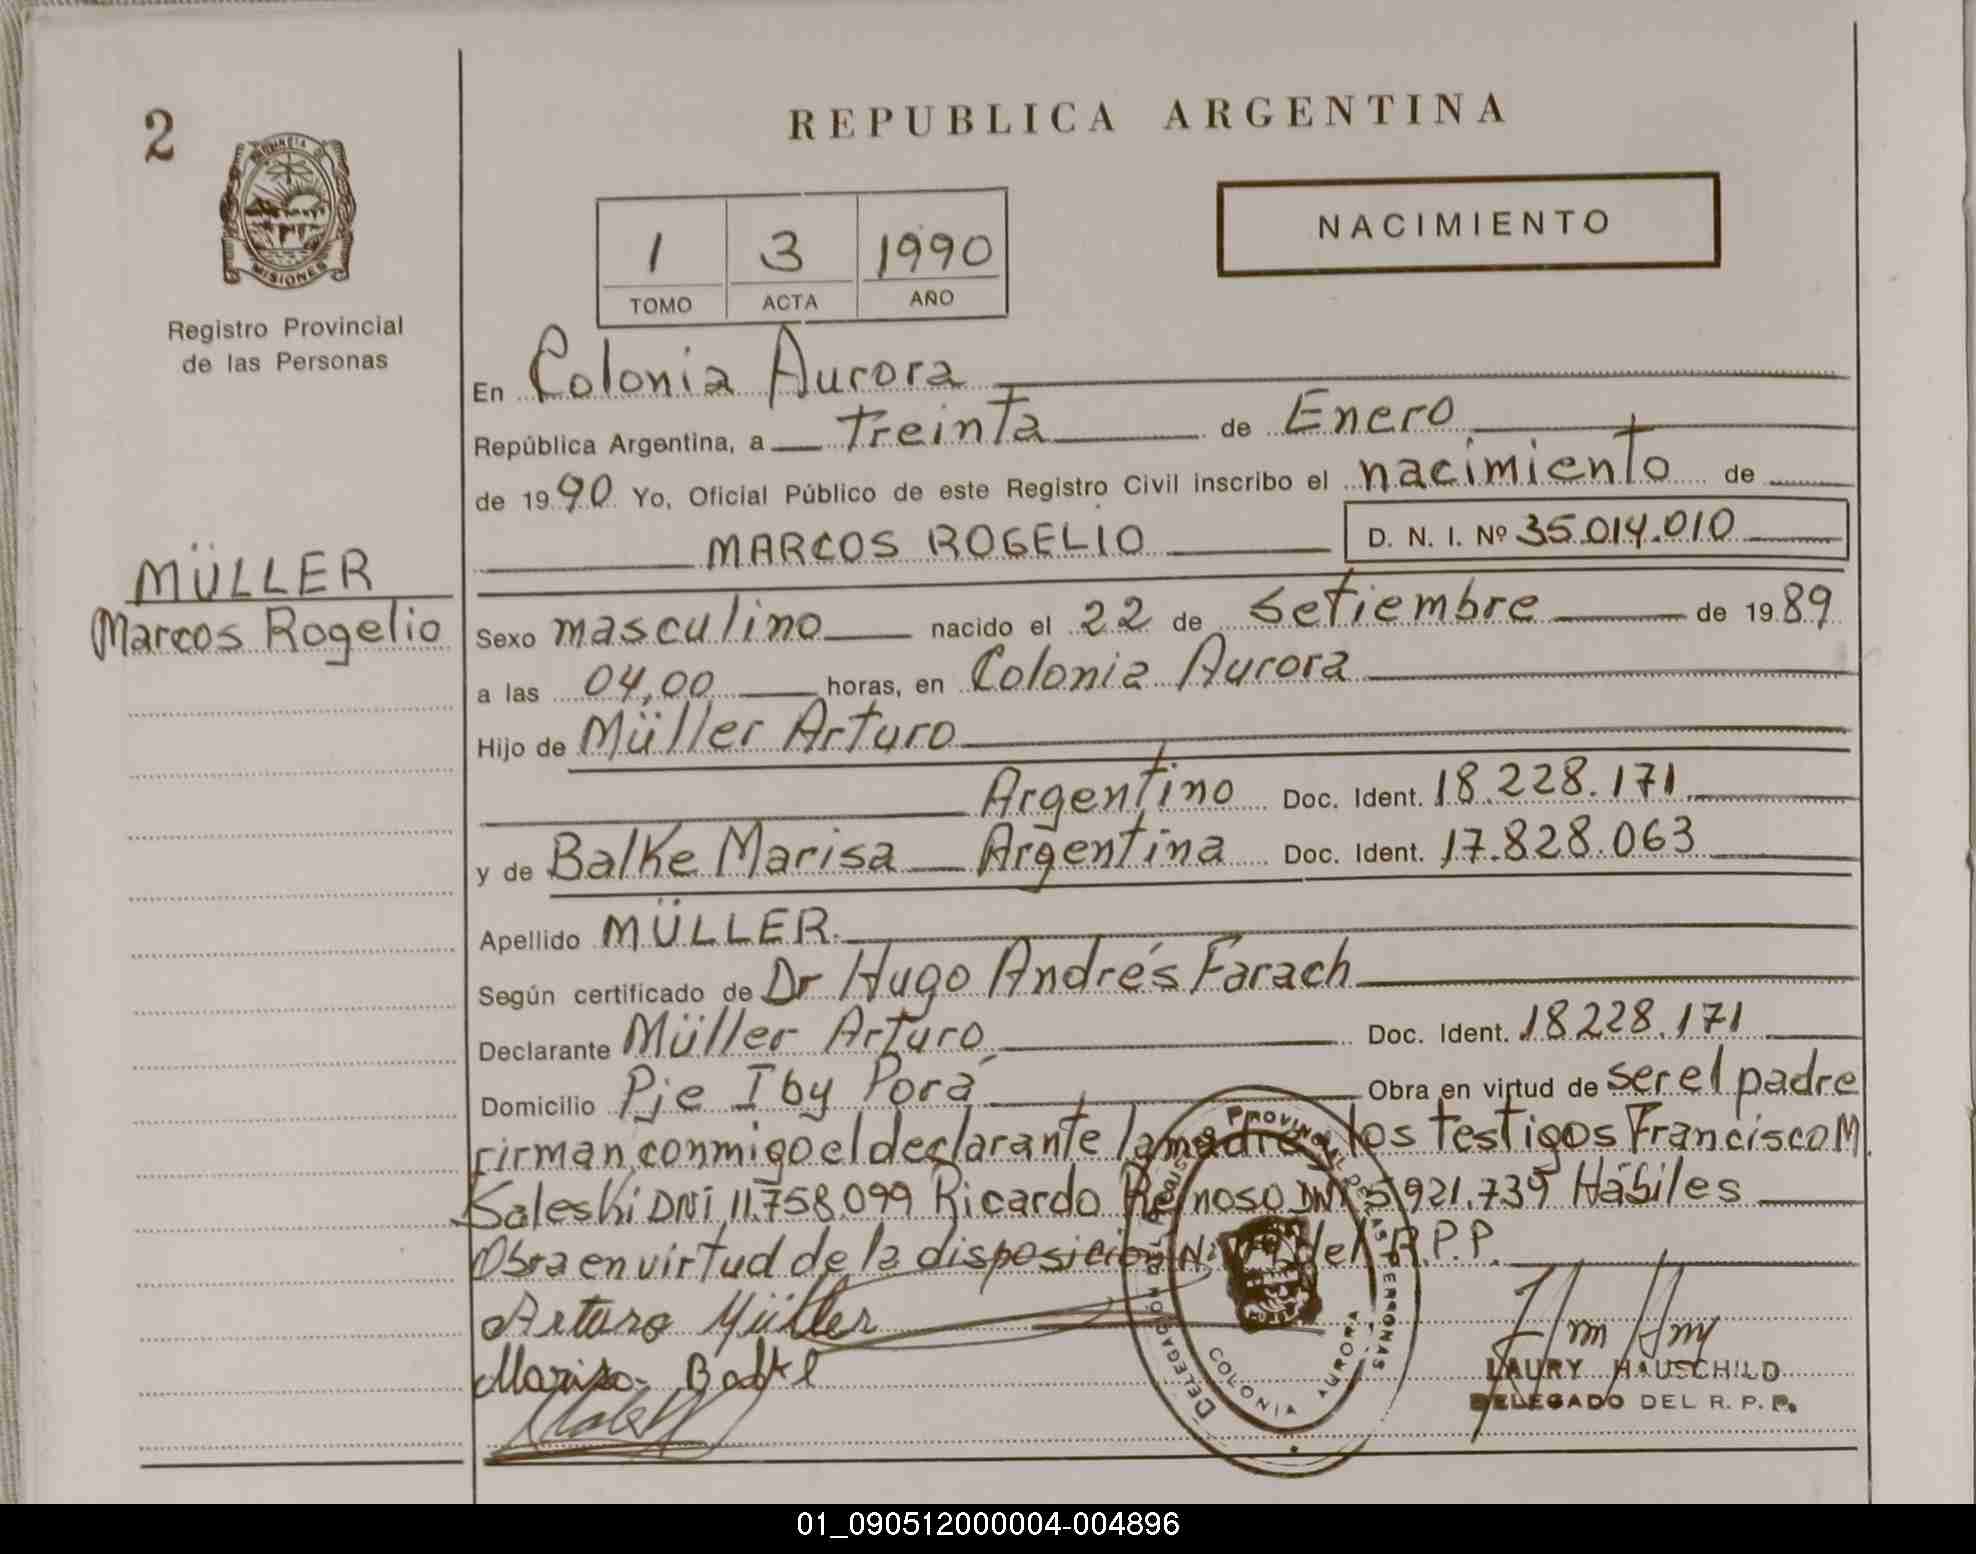 2
REPUBLICA ARGENTINA
PROVINCIA DE
MISIONES
Registro Provincial
de las Personas
1 3 1990
TOMO ACTA AÑO
NACIMIENTO
En Colonia Aurora
República Argentina, a treinta de Enero
de 1990 Yo, Oficial Público de este Registro Civil inscribo el nacimiento de
MARCOS ROGELIO D. N. I. Nº 35.014.010
MÜLLER
Marcos Rogelio
Sexo masculino nacido el 22 de Setiembre de 1989
a las 04,00 horas, en Colonia Aurora
Hijo de Müller Arturo
Argentino Doc. Ident. 18.228.171
y de Balke Marisa Argentina Doc. Ident. 17.828.063
Apellido MÜLLER
Según certificado de Dr Hugo Andrés Farach
Declarante Müller Arturo Doc. Ident. 18228.171
Domicilio Pje Iby Porá Obra en virtud de ser el padre
firman conmigo el declarante la madre y los testigos Francisco M
Saleski DNI 11.758.099 Ricardo Reinoso DNI 5921.739 Hábiles
Obra en virtud de la disposición Nº del R.P.P.
Arturo Müller
Marisa Balke
DELEGACION COLONIA AURORA
LAURY HAUSCHILD
DELEGADO DEL R. P. P.
01_090512000004-004896